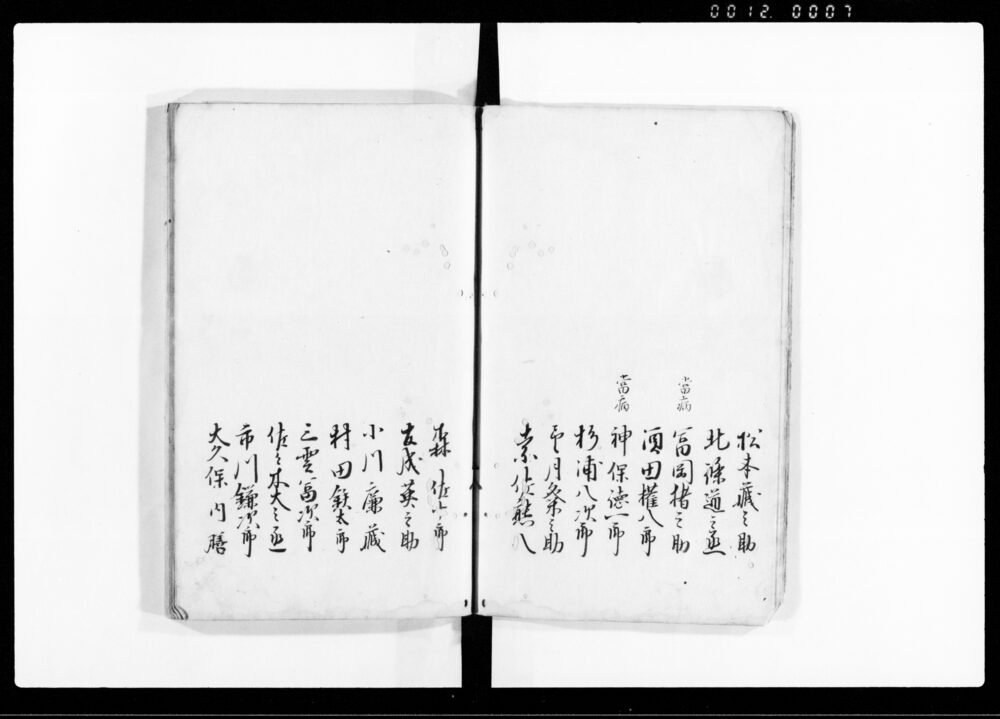 0012 0007
松本蔵之助
北條道之丞
當病
冨岡楮之助
酒田權八郎
當病
神保徳一郎
杉浦八次郎
月粂之助
佐熊八
森佐十郎
友成英之助
小川廉蔵
村田鉄太郎
三雲冨次郎
佐々木大之丞
市川鎌次郎
大久保内膳